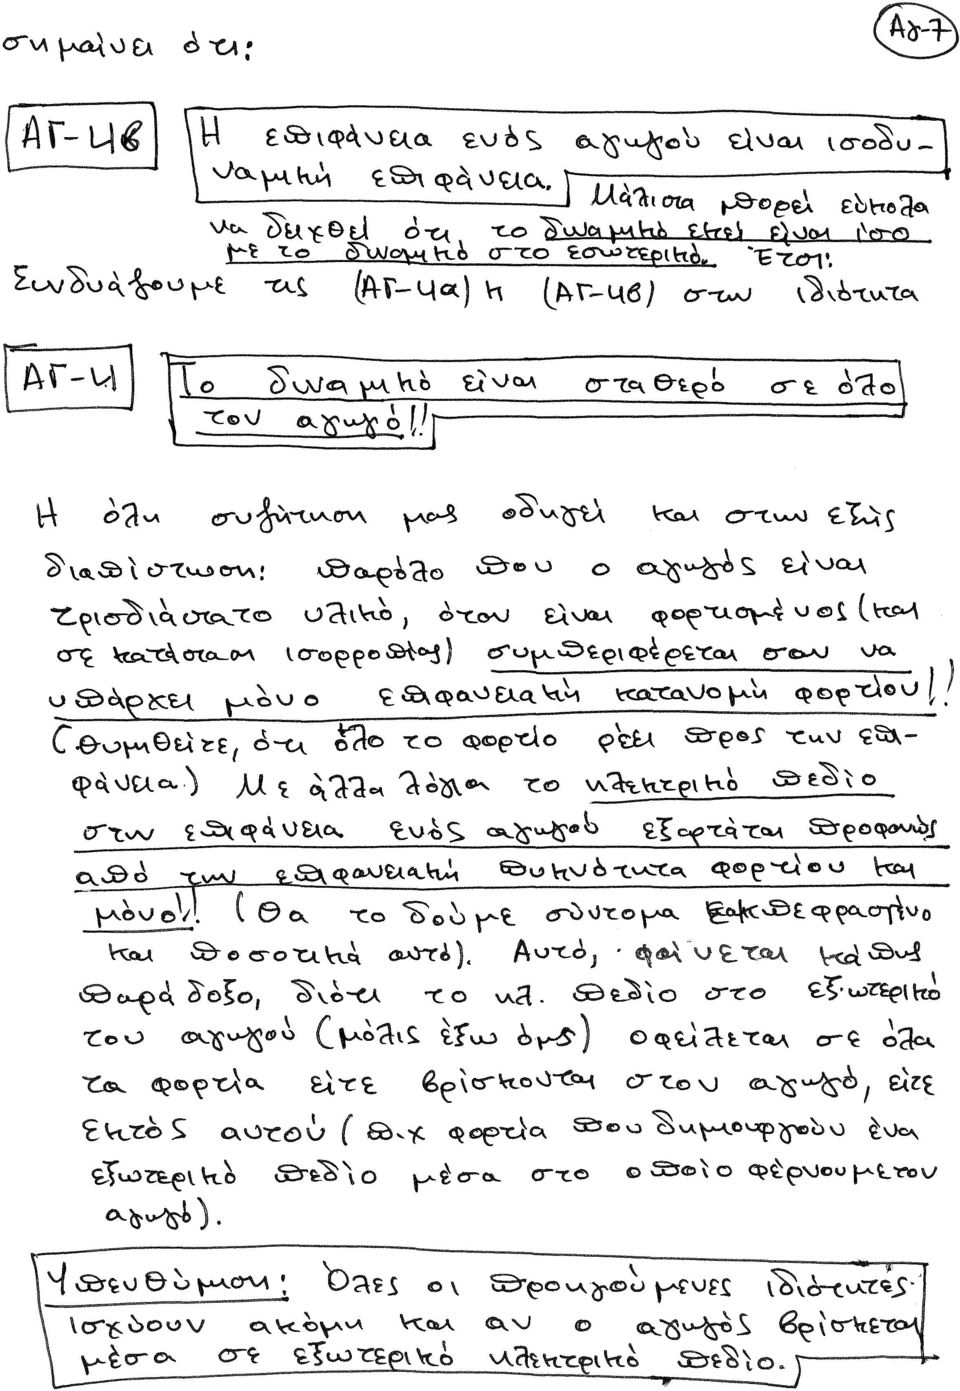 Αγ-7
σημαίνει ότι:
ΑΓ-4β
Η επιφάνεια ενός αγωγού είναι ισοδυ-
ναμική επιφάνεια.
Μάλιστα μπορεί εύκολα
να δειχθεί ότι το δυναμικό εκεί είναι ίσο
με το δυναμικό στο εσωτερικό. Έτσι:
Συνδυάζουμε τις (ΑΓ-4α) κ (ΑΓ-4β) στην ιδιότητα
ΑΓ-4
Το δυναμικό είναι σταθερό σε όλο
τον αγωγό!!
Η όλη συζήτηση μας οδηγεί και στην εξής
διαπίστωση: παρόλο που ο αγωγός είναι
τρισδιάστατο υλικό, όταν είναι φορτισμένος (και
σε κατάσταση ισορροπίας) συμπεριφέρεται σαν να
υπάρχει μόνο επιφανειακή κατανομή φορτίου!!
(θυμηθείτε, ότι όλο το φορτίο ρέει προς την επι-
φάνεια.) Με άλλα λόγια το ηλεκτρικό πεδίο
στην επιφάνεια ενός αγωγού εξαρτάται προφανώς
από την επιφανειακή πυκνότητα φορτίου και
μόνο!! (Θα το δούμε σύντομα πεφρασμένο
και ποσοτικά αυτό). Αυτό, φαίνεται κάπως
παράδοξο, διότι το ηλ. πεδίο στο εξωτερικό
του αγωγού (μόλις έξω όμως) οφείλεται σε όλα
τα φορτία είτε βρίσκονται στον αγωγό, είτε
εκτός αυτού (π.χ φορτία που δημιουργούν ένα
εξωτερικό πεδίο μέσα στο οποίο φέρνουμε τον
αγωγό).
Υπενθύμιση: Όλες οι προηγούμενες ιδιότητες
ισχύουν ακόμη και αν ο αγωγός βρίσκεται
μέσα σε εξωτερικό ηλεκτρικό πεδίο.